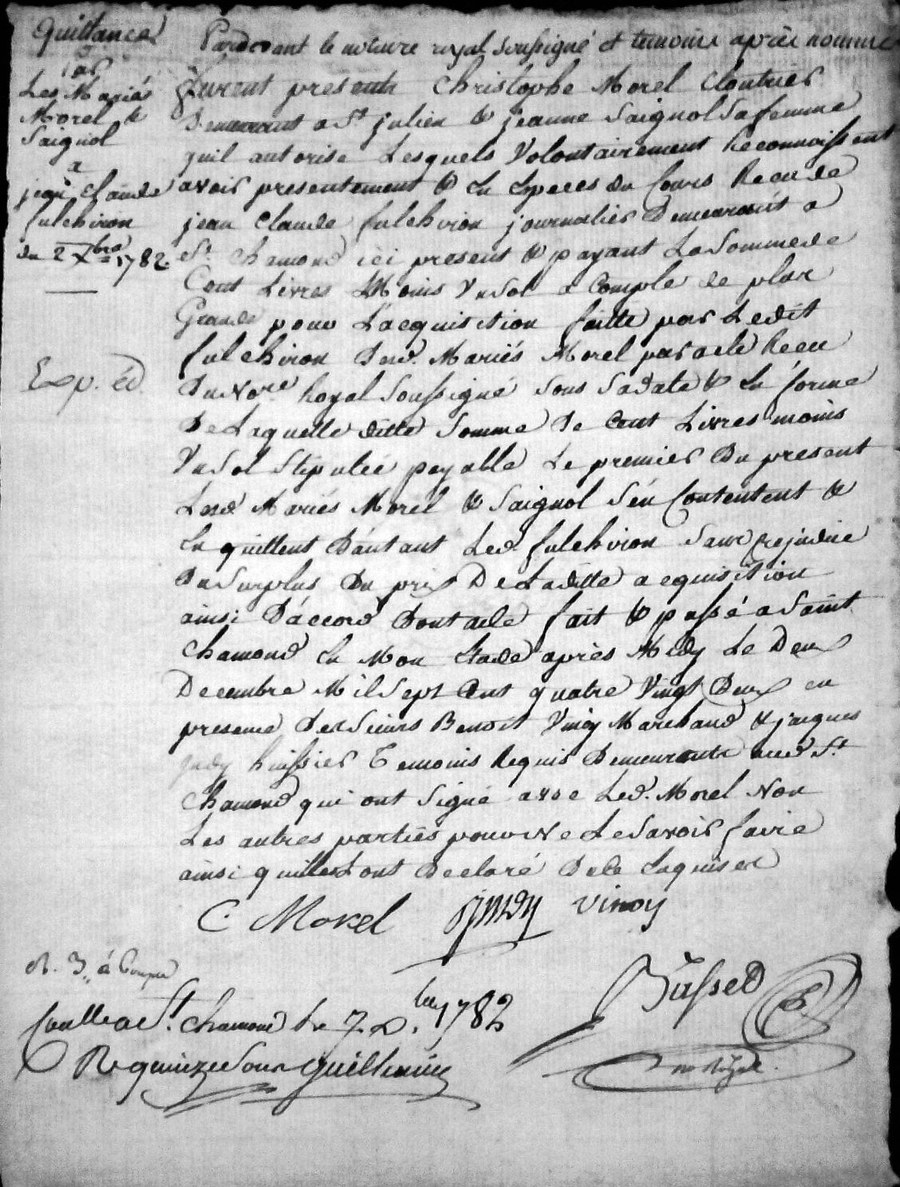 Quittance
par
Les Mariés
Morel &
Saignol
a
jean claude
fulchiron
du 2 Xbre 1782.
Exp. éd.
Pardevant le notaire royal soussigné et temoins après nommés
furent presents Christophe Morel Cloutrier
Demeurant a St julien & jeanne Saignol Sa femme
quil autorise Lesquels Volontairement Reconnoissent
avoir presentement & En Especes du Cours Receu de
jean Claude fulchiron journalier Demeurant a
St. chamond ici present & payant La Somme de
Cent Livres Moins Un Sol a Compte de plus
Grande pour L'acquisition faitte par Ledit
fulchiron Desd. Mariés Morel par acte Receu
Du Nore. Royal Soussigné Sous Sa date & En forme
De Laquelle ditte Somme De Cent Livres moins
Un Sol Stipulée payable Le premier Du present
Lesd Mariés Morel & Saignol S'en Contentent &
En quittent D'autant Led. fulchiron Sans prejudice
Du Surplus Du prix De Laditte acquisition
ainsi D'accord Dont acte fait & passé a Saint
Chamond En Mon Etude après Midy Le Deux
Decembre Mil Sept Cent quatre Vingt Deux en
presence Des Sieurs Benoit Vinoy Marchand & jacques
judy huissier Temoins Requis Demeurants aud. St
Chamond qui ont Signé avec Led. Morel Non
Les autres parties pour ne Le Savoir faire
ainsi quils ont Declaré De Ce Enquises
C. Morel judy vinoy
R. 3,, à Compte
Bussed
Conlle a St. chamond le 7 Xbre 1782
R quinze Sous Guilhaumin
nre Royal.